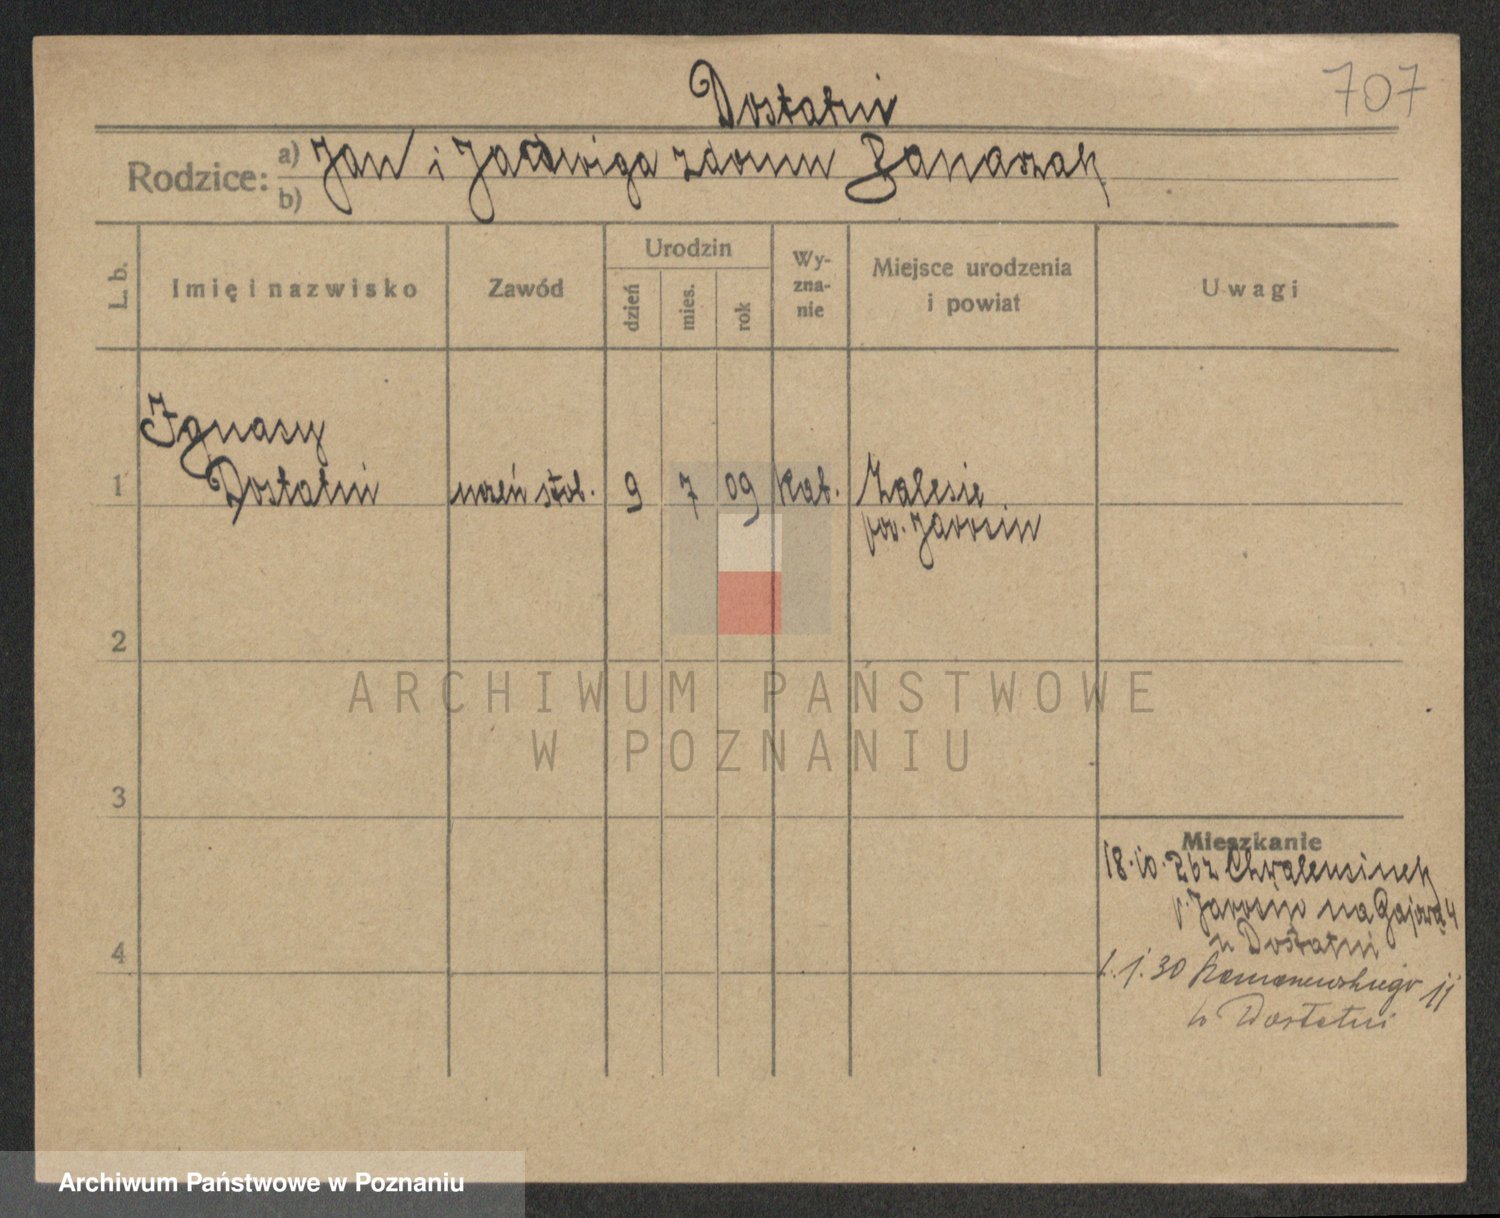 707
Dostatni
Rodzice: a) Jan i Jadwiga z domu Banaszak
b)
L. b.
Imię i nazwisko
Zawód
Urodzin
dzień
mies.
rok
Wy-
zna-
nie
Miejsce urodzenia
i powiat
Uwagi
Ignasy
1 Dostatni uczeń stol. 9 7 09 kat. Zalesie
pow. Jarocin
2
3
4
Mieszkanie
18.10.26 z
p. Jarocin na Gajową 4
u Dostatni
30 11
u Dostatni
ARCHIWUM PAŃSTWOWE
W POZNANIU
Archiwum Państwowe w Poznaniu